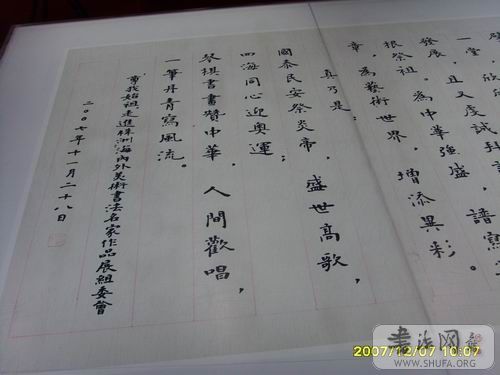 一堂，欣
發展。且又虔誠拜
根祭祖。為中華強盛，譜寫
章，為藝術世界，增添異彩。
真乃是：
國泰民安祭炎帝，盛世高歌，
四海同心迎奧運；
琴棋書畫贊中華，人間歡唱，
一筆丹青寫風流。
"尋找始祖走進株洲"海內外美術書法名家作品展組委會
二00七年十一月二十八日
2007/12/07 10:07
書法网
WWW.SHUFA.ORG